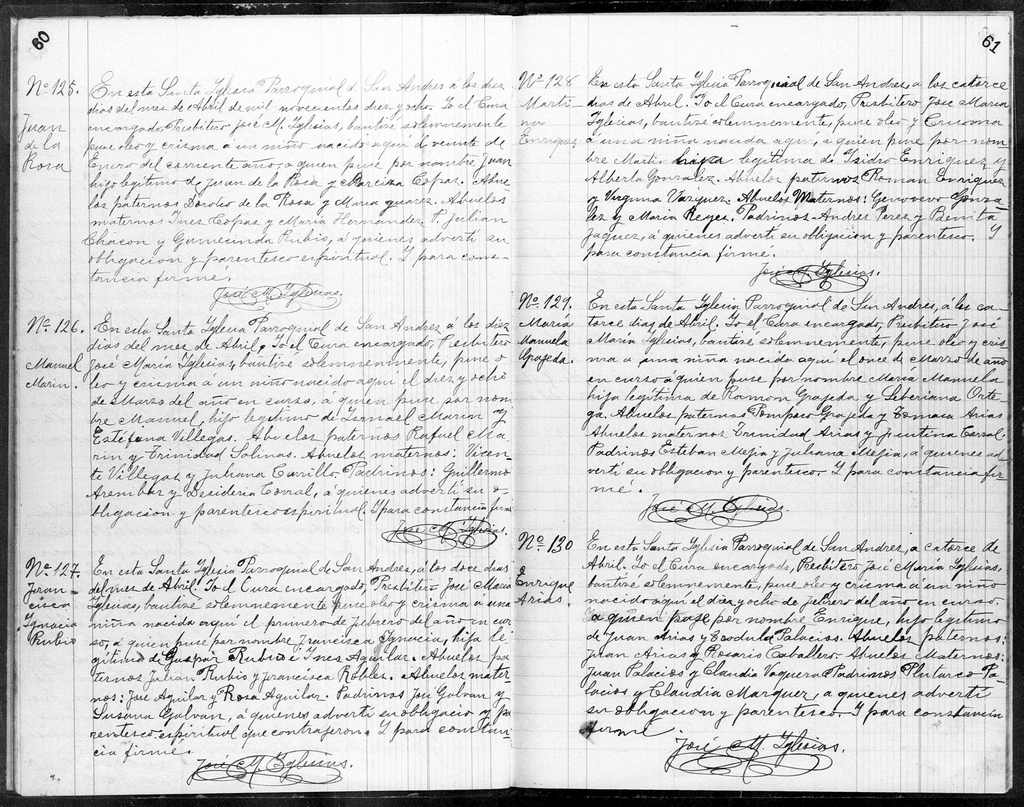 60
Nº 125.
Juan
de la
Rosa
En esta Santa Yglesia Parroquial d San Andres á los diez
dias del mes de Abril de mil novecientos diez y ocho. Yo el Cura
encargado Presbitero José M. Yglesias, bautisé solemnemente
puse oleo y crisma a un niño nacido aqui el veinte de
Enero del corriente año, a quien puse por nombre Juan
hijo legitimo de Juan de la Rosa y Narciza Copas. Abue-
los paternos Doroteo de la Rosa y Maria Juarez. Abuelos
maternos Ines Copas y Maria Hernandez. P. Julian
Chacon y Gumecinda Rubio, á quienes advertí su
obligacion y parentesco espiritual. Y para cons-
tancia firmé.
José M. Yglesias.
Nº 126.
Manuel
Marin.
En esta Santa Yglesia Parroquial de San Andres á los diez
dias del mes de Abril. Yo el Cura encargado, Presbitero
José María Yglesias, bautisé solemnemente, puse o-
leo y crisma a un niño nacido aqui el diez y ocho
de Marzo del año en curso, a quien puse por nom-
bre Manuel, hijo legitimo de Ismael Marin y
Estefana Villegas. Abuelos paternos Rafael Ma-
rin y Trinidad Salinas. Abuelos maternos: Vicen-
te Villegas y Juliana Carrillo. Padrinos: Guillermo
Arembar y Desideria Corral, á quienes advertí su o-
bligacion y parentesco espiritual. Y para constancia firmé
José M. Yglesias.
Nº 127.
Fran-
cisca
Ygnacia
Rubio
En esta Santa Yglesia Parroquial de San Andres, a los doce dias
del mes de Abril. Yo el Cura encargado, Presbitero José María
Yglesias, bautisé solemnemente puse oleo y crisma á una
niña nacida aqui el primero de Febrero del año en cur-
so, á quien puse por nombre Francisca Ygnacia, hija le-
gitima de Gaspár Rubio é Ines Aguilar. Abuelos pa-
ternos Julian Rubio y Francisca Robles. Abuelos mater-
nos: José Aguilar y Rosa Aguilar. Padrinos José Galvan y
Susana Galvan, á quienes advertí su obligacio y pa-
rentesco espiritual que contrajeron. Y para constan-
cia firmé.
José M. Yglesias.
61
Nº 128
Marti-
na
Enriquez
En esta Santa Yglesia Parroquial de San Andres, a los catorce
dias de Abril. Yo el Cura encargado, Presbitero José Maria
Yglesias, bautisé solemnemente, puse oleo y Crisma
a una niña nacida aqui, a quien puse por nom-
bre Martin hija legitima de Isidro Enriquez y
Alberta Gonzalez. Abuelos paternos Roman Enriquez
y Virginia Vazquez. Abuelos Maternos: Genovevo Gonza-
lez y Maria Reyes, Padrinos Andres Perez y Benita
Jaquez, á quienes advertí su obligacion y parentesco. Y
para constancia firmé.
José M. Yglesias.
Nº 129.
María
Manuela
Grajeda.
En esta Santa Yglesia Parroquial de San Andres, á los ca-
torce dias de Abril. Yo el Cura encargado, Presbitero José
María Yglesias, bautisé solemnemente, puse oleo y cris-
ma a una niña nacida aqui el once de Marzo de año
en curso á quien puse por nombre María Manuela
hija legitima de Ramón Grajeda y Seberiana Orte-
ga. Abuelos paternos Pompeco Grajeda y Tomasa Arias
Abuelos maternos Trinidad Arias y Faustina Corral.
Padrinos Esteban Mejia y Juliana Mejia, a quienes ad-
vertí su obligacion y parentesco. Y para constancia fir-
mé.
José M. Yglesias.
Nº 130
Enrique
Arias.
En esta Santa Yglesia Parroquial de San Andres, a catorce de
Abril. Yo el Cura encargado, Presbitero José María Yglesias,
bautisé solemnemente, puse oleo y crisma á un niño
nacido aqui el diez y ocho de Febrero del año en curso.
a quien puse, por nombre Enrique, hijo legitimo
de Juan Arias y Teodula Palacios. Abuelos paternos:
Juan Arias y Rosario Caballero. Abuelos Maternos:
Juan Palacios y Claudia Vaquera. Padrinos Plutarco Pa-
lacios y Claudia Marquez, a quienes advertí
su obligacion y parentesco. Y para constancia
firmé.
José M. Yglesias.